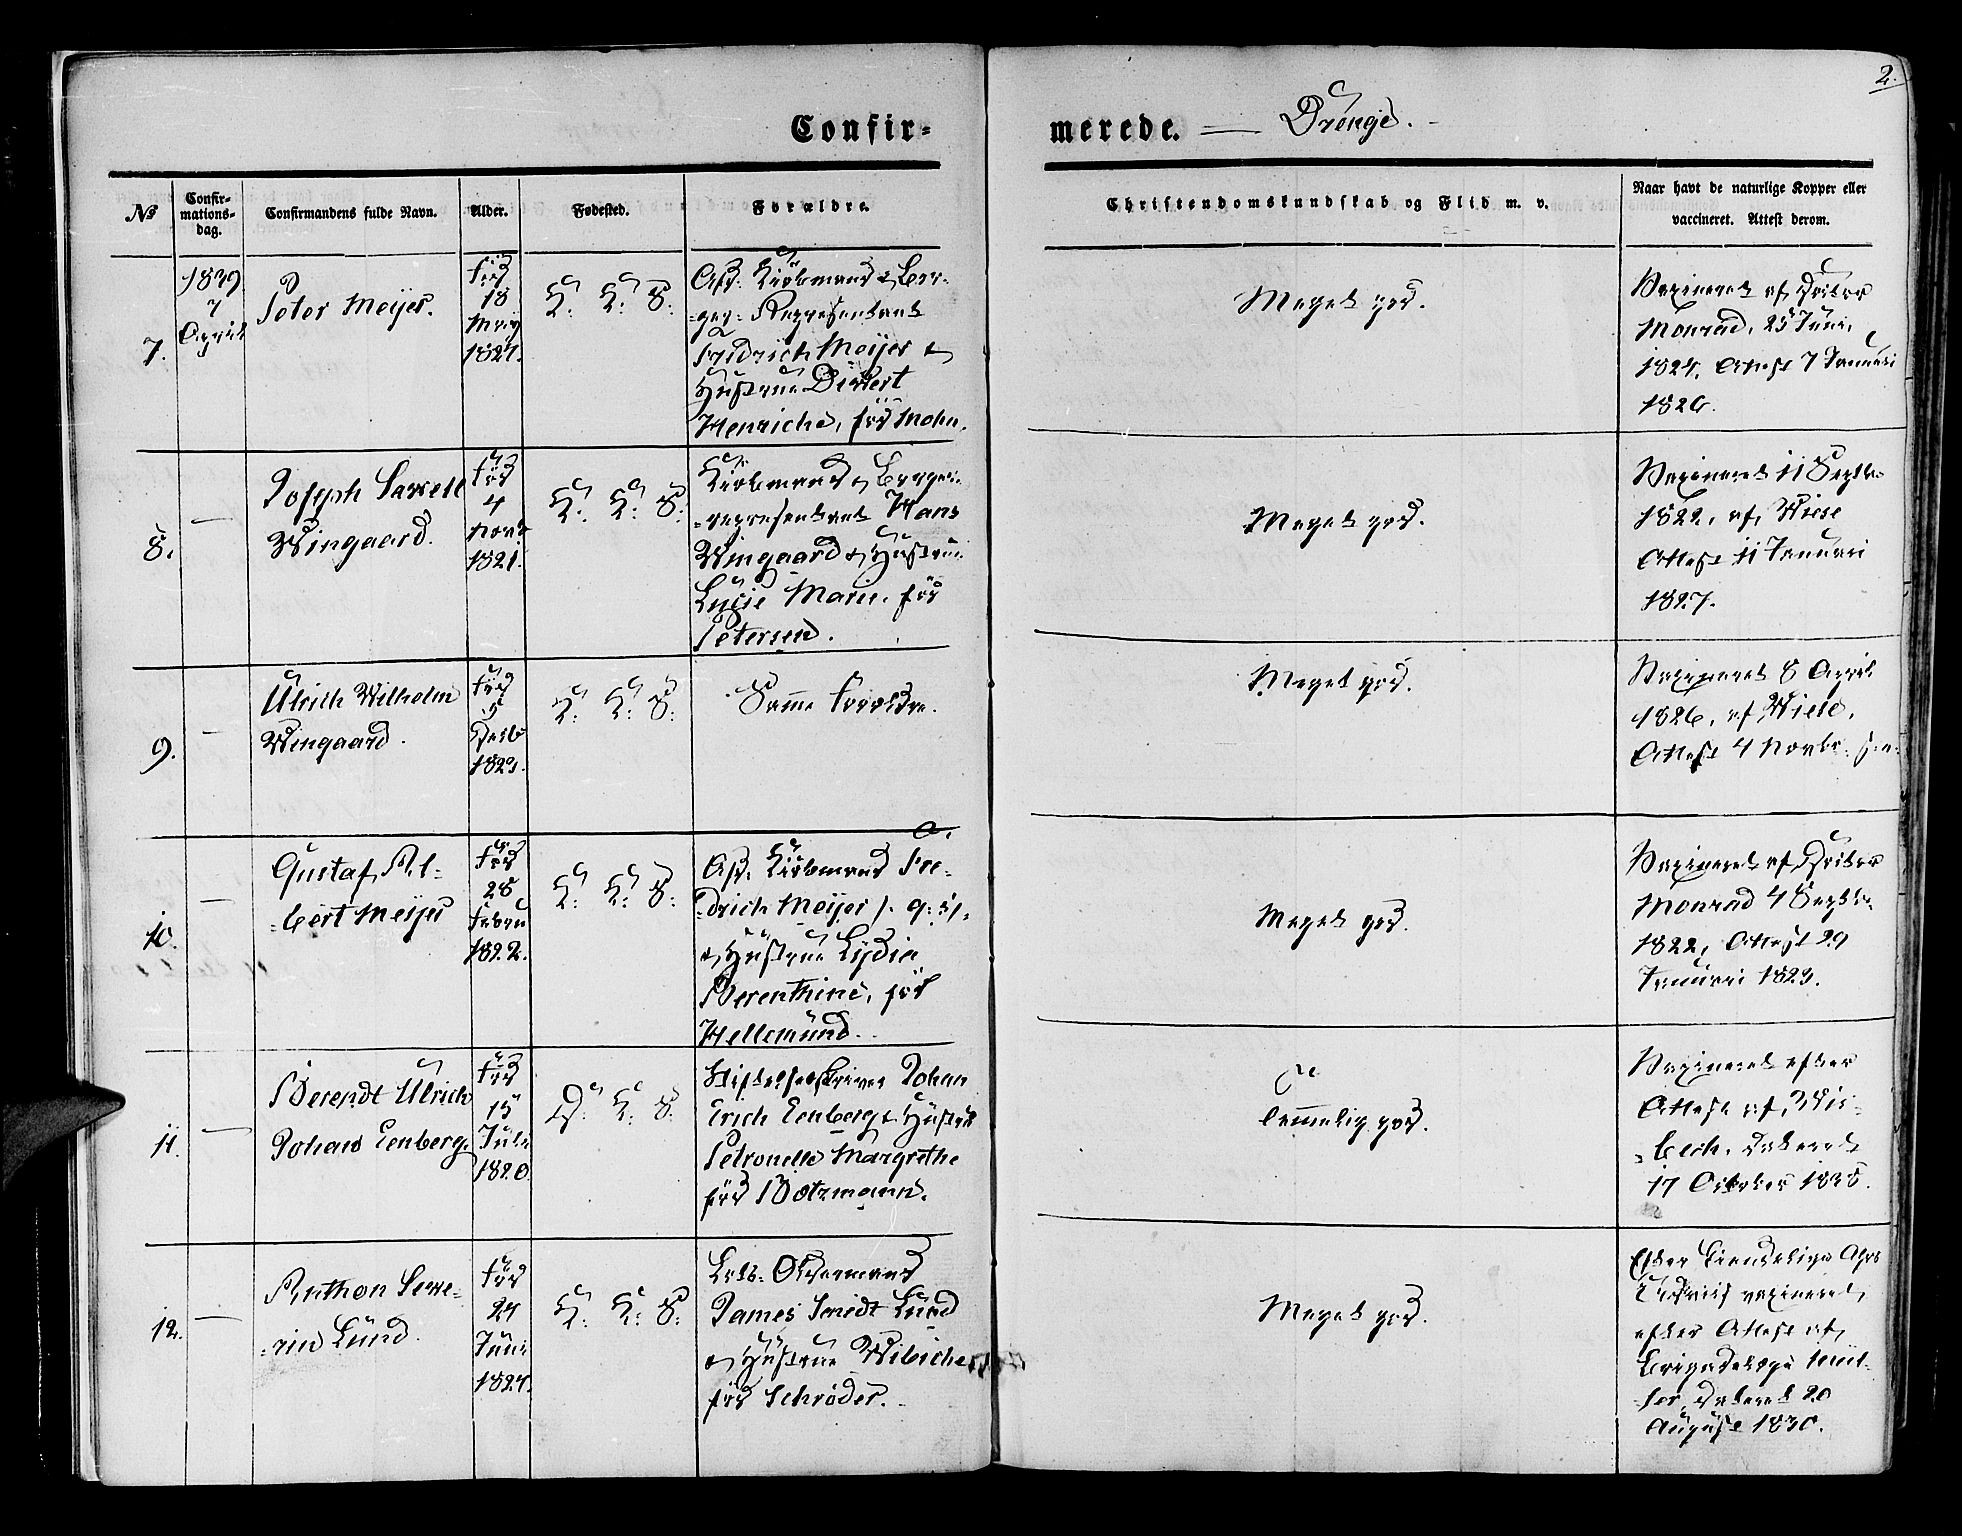 2.
Confir=
merede. — Drenge.
No
Confir-
mations-
dag.
Confirmandens fulde Navn.
Alder.
Fødested.
Forældre.
Christendomskundskab og Flid m. v.
Naar havt de naturlige Kopper eller
vaccineret. Attest derom.
7.
1839
7
April
Peter Meijer.
föd
18
May
1824.
K: K: S:
Afd: Kiöbmand & Bor-
ger- Repræsentant
Fridrich Meijer &
Hustrue Divert
Henriche, föd Mohn.
Meget god.
Vaxineret af Doctor
Monrad, 25 Juni,
1824. Attest 7 Januari
1826.
8.
—
Joseph
Wingaard.
föd
4
Novb
1821.
K: K: S:
Kiöbmand & Borger-
-repræsentant Hans
Wingaard & Hustrue
Lucie Marie, föd
Petersen.
Meget god.
Vaxineret 11 Septbr
1822, af Wiese
Attest 11 Januari
1827.
9.
—
Ulrich Wilhelm
Wingaard.
föd
5
Decb
1823.
K: K: S:
Samme Forældre.
Meget god.
Vaxineret 8 April
1826, af Wiese,
Attest 4 Novbr
10.
—
Gustaf Al-
-bert Meijer
föd
28
Febru
1822.
K: K: S:
Afd. Kiöbmand Fre-
-drich Meijer
& Hustrue Lydia
Berenthine, föd
Hellemund.
Meget god.
Vaxineret af Doctor
Monrad 4 Septbr
1822, Attest 29
Januari 1823.
11.
—
Berendt Ulrich
Johan Eenberg.
föd
15
Juli
1820
D: K: S:
Johan
Erich Eenberg & Hustrue
Petronelle Margrethe
föd Botzmann.
Temmelig god.
Vaxineret efter
Attest af Wis-
-bech, dateret
17 October 1838.
12.
—
Anthon Seve-
-rin Lund.
föd
24
Juni
1824.
K: K: S:
Lods- Oldermand
James Smidt Lund
& Hustrue Wibiche
föd Schröder.
Meget god.
Efter
vaxineret,
efter Attest af
Brigadelæge Mül-
-ler, dateret 20
August 1830.